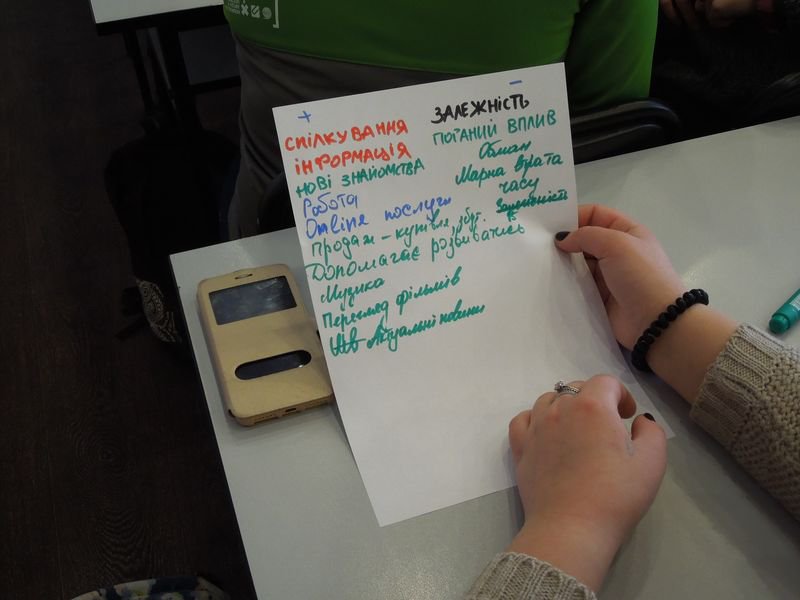 +
СПІЛКУВАННЯ
ІНФОРМАЦІЯ
НОВІ ЗНАЙОМСТВА
Робота
Online послуги
Продаж – купівля,
Допомагає розвиватись
Музика
Перегляд фільмів
Актуальні новини
–
ЗАЛЕЖНІСТЬ
ПОГАНИЙ ВПЛИВ
Обман
Марна втрата
часу